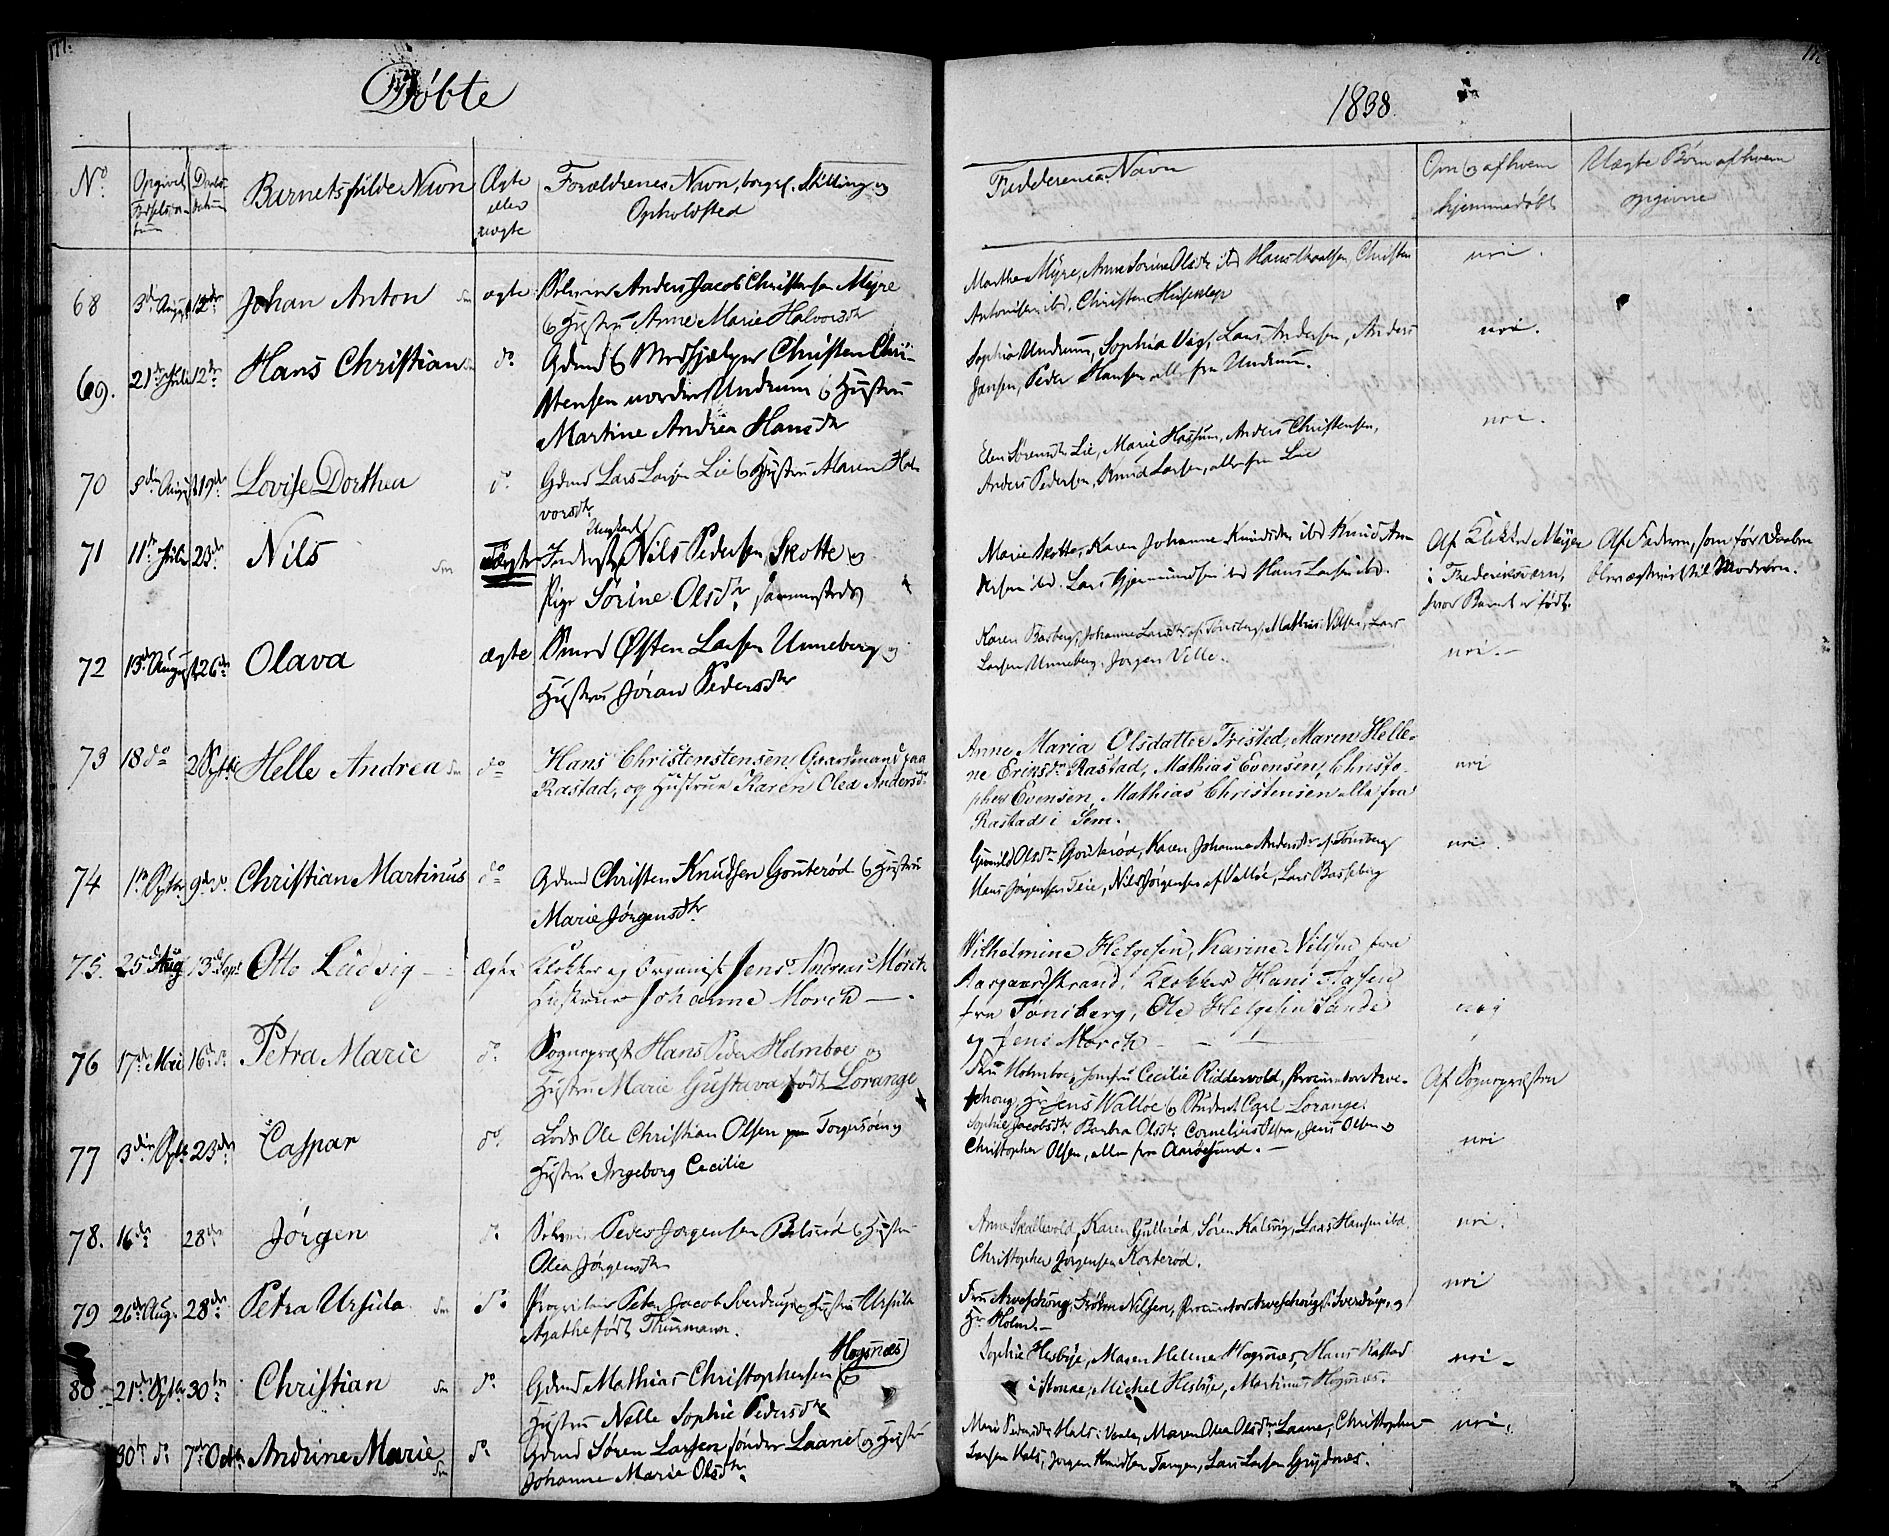 Døbte
1838.
No
Barnets fulde Navn
Ægte eller uægte
Forældrenes Navn, borgerl. Stilling og Opholdsted
Faddernes Navn
Om og af hvem hjemmedøbt
Uægte Børn af hvem opgivne
68 3die August 12te Johan Anton ægte Anders Jacob Christensen Myre
& Hustru Anne Marie Halvorsdtr
Marthe Myre, Anne Sorine Olsdtr ibd Hans Christen
Antonisen ibd, Christen
nei.
69. 21de Juli 12te Hans Christian do Gdmd & Medhjælper Christen Chri-
stensen nordre Undrum & Hustru
Martine Andrea Hansdtr
Sophie Undrum, Sophia Lars Andersen, Anders
Jansen, Peder Hansen alle fra Undrum.
nei.
70 5te August 19de Lovise Dorthea do Gdmd Lars Larsen Lie & Hustru Maren Hal-
vorsdtr
Elen Sørensdtr Lie, Marie Hassum, Anders Christensen,
Anders Pedersen, Knud Larsen, alle fra Lie
nei.
71 11te Juli 23de Nils uægte Ungkarl
Nils Pedersen Skotte &
Pige Sørine Olsdtr sammesteds
Marie Skotte, Karen Johanne Knudsdtr ibd Knud An-
dersen ibd. Lars Gjermundsen ibd Hans Larsen ibd.
Af Meyer
i Frederiksværn,
hvor Barnet er født.
Af Faderen, som før Daaben
blev ægteviet til Moderen.
72 13de August 26de Olava ægte Østen Larsen Unneberg og
Hustru Jøran Pedersdtr
Karen Basberg, Johanne Larsdtr af Tønsberg, Mathis Nilsen, Lars
Larsen Unneberg. Jørgen Velle.
nei. —
73 18 do 2 Septbr Helle Andrea do Hans Christenstensen, Gaardmand paa
Rastad, og Hustrue Karen Olea Andersdr
Anne Maria Olsdatter Tristed, Maren Helle-
ne Ericsdr Rastad, Mathias Evensen, Christo-
pher Evensen, Mathias Christensen alle fra
Rastad i Sem.
nei
74 1te Septbr 9de do. Christian Martinus do Gdmd Christen Knudsen Gouterød & Hustru
Marie Jørgensdtr
Gunild Olsdtr Gouterød, Karen Johanne Andersdtr af Tønsberg
Hans Jørgensen Teie, Nils Jørgensen af Valløe, Lars Basseberg
nei.
75. 25de Aug 13de Sept Otto Ludvig Ægte Klokker og Organist Jens Andreas Mørch
Hustrue Johanne Morch — .
Wilhelmine Helgesen, Karine Nilsen fra
Aasgaardstrand, Klokker Hans Aasen
fra Tønsberg, Ole Helgesen Sande
og Jens Morch
nei
76 17de Mai 16de do. Petra Marie do. Sognepræst Hans Peder Holmboe og
Hustru Marie Gustava født Lorange
Fru Holmboe, Jomfru Cecilie Riddervold, Procurator Arve-
schoug, Hr Jens Walløe & Student Carl Lorange.
Af Sognepræsten
77 3die Septbr 23de Caspar do. Lods Ole Christian Olsen Torgersøen &
Hustru Ingeborg Cecilie
Sophie Jacobsdtr Barbra Olsdtr Cornelius Olsen, Jens Olsen &
Christopher Olsen, alle fra Aarøesund. —
nei
78. 16de 28de Jørgen do. Peder Jørgensen Bilserød & Hustru
Olea Jørgensdtr
Anne Skallevold, Karen Gullerød, Søren Kalsvig, Lars Hansen ibd.
Christopher Jørgensen Korterød.
nei.
79 26de Aug. 28de Petra Ursula do Peter Jacob Sverdrup & Hustru Ursula
Agathe født Thurmann.
Fru Arveschoug, Frøken Nilsen, Procurator Arveschoug, Sverdrup &
Hr Holm. —
nei
80 21de Septbr 30te Christian do. Gdmd Mathias Christophersen Hogsnæs &
Hustru Nelle Sophie Pedersdtr
Sophie Hesbye, Maren Helene Hogsnæs, Hans Rastad
Michel Hesbye, Martinus Hogsnæs.
nei —
30te do. 7de Octbr Andrine Marie do. Gdmd Søren Larsen søndre Laane & Hustru
Johanne Marie Olsdtr
Mari Pedersdtr Hals, Maren Olea Olsdtr Laane, Christopher
Larsen Hals, Jørgen Knudsen Tangen, Lars Larsen Grydnæs.
nei.